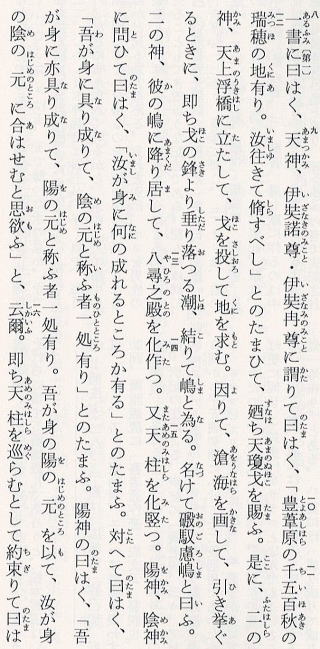 一書に曰はく、天神　伊奘諾尊・伊奘冉尊に謂りて曰はく、「豊葦原の千五百秋の
瑞穂の地有り。汝往きて脩すべし」とのたまひて、廼ち天瓊戈を賜ふ。是に、二の
神、天上浮橋に立たして、戈を投して地を求む。因りて、滄海を画して、引き挙ぐ
るときに、即ち戈の鋒より垂り落つる潮、結りて嶋と為る。名けて磤馭慮嶋と曰ふ。
二の神、彼の嶋に降り居して、八尋之殿を化作つ。又天柱を化竪つ。陽神、陰神
に問ひて曰はく、「汝が身に何の成れるところか有る」とのたまふ。対へて曰はく、
「吾が身に具り成りて、陰の元と称ふ者一処有り」とのたまふ。陽神の曰はく、「吾
が身に亦具り成りて、陽の元と称ふ者一処有り。吾が身の陽の元を以て、汝が身
の陰の元に合はせむと思欲ふ」と、云爾。即ち天柱を巡らむとして約束りて曰は